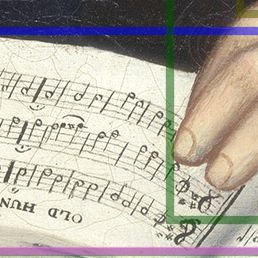 OLD HUN